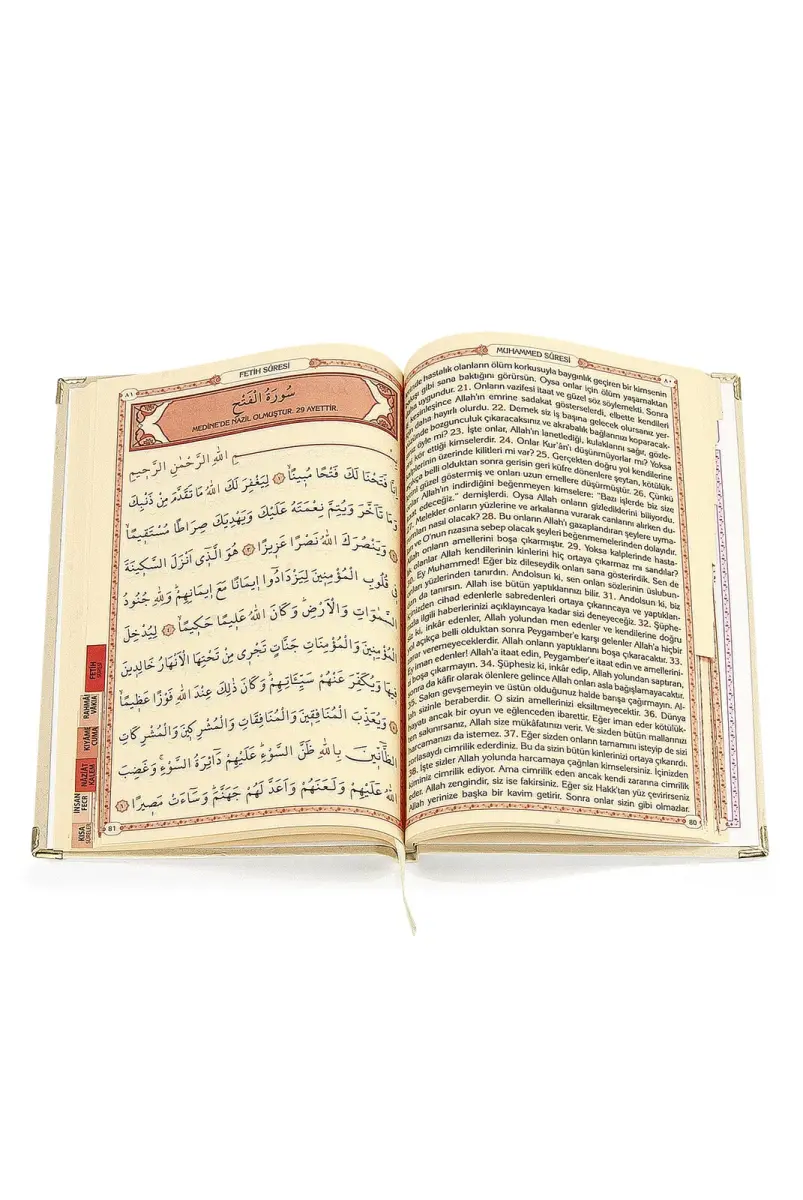 MUHAMMED SÛRESİ
٨٠
hastalık olanların ölüm korkusuyla baygınlık geçiren bir kimsenin
gibi sana baktığını görürsün. Oysa onlar için ölüm yaşamaktan
uygundur. 21. Onların vazifesi itaat ve güzel söz söylemekti. Sonra
Allah'ın emrine sadakat gösterselerdi, elbette kendileri
daha hayırlı olurdu. 22. Demek siz iş başına gelecek olursanız yer-
bozgunculuk çıkaracaksınız ve akrabalık bağlarınızı koparacak-
öyle mi? 23. İşte onlar, Allah'ın lanetlediği, kulaklarını sağır, gözle-
kör ettiği kimselerdir. 24. Onlar Kur'ân'ı düşünmüyorlar mı? Yoksa
üzerinde kilitleri mi var? 25. Gerçekten doğru yol kendilerine
belli olduktan sonra gerisin geri küfre dönenlere şeytan, kötülük-
güzel göstermiş ve onları uzun emellere düşürmüştür. 26. Çünkü
Allah'ın indirdiğini beğenmeyen kimselere: "Bazı işlerde biz size
edeceğiz." demişlerdi. Oysa Allah onların gizlediklerini biliyordu.
27. Melekler onların yüzlerine ve arkalarına vurarak canlarını alırken du-
nasıl olacak? 28. Bu onların Allah'ı gazaplandıran şeylere uyma-
ve O'nun rızasına sebep olacak şeyleri beğenmemelerinden dolayıdır.
onların amellerini boşa çıkarmıştır. 29. Yoksa kalplerinde hasta-
olanlar Allah kendilerinin kinlerini hiç ortaya çıkarmaz mı sandılar?
30. Ey Muhammed! Eğer biz dileseydik onları sana gösterirdik. Sen de
onları yüzlerinden tanırdın. Andolsun ki, sen onları sözlerinin üslubun-
dan da tanırsın. Allah ise bütün yaptıklarınızı bilir. 31. Andolsun ki, biz
içinizden cihad edenlerle sabredenleri ortaya çıkarıncaya ve yaptıkları-
nızla ilgili haberlerinizi açıklayıncaya kadar sizi deneyeceğiz. 32. Şüphe-
ki, inkâr edenler, Allah yolundan men edenler ve kendilerine doğru
yol açıkça belli olduktan sonra Peygamber'e karşı gelenler Allah'a hiçbir
zarar veremeyeceklerdir. Allah onların yaptıklarını boşa çıkaracaktır. 33.
Ey iman edenler! Allah'a itaat edin, Peygamber'e itaat edin ve amellerini-
boşa çıkarmayın. 34. Şüphesiz ki, inkâr edip, Allah yolundan saptıran,
sonra da kâfir olarak ölenlere gelince Allah onları asla bağışlamayacaktır.
35. Sakın gevşemeyin ve üstün olduğunuz halde barışa çağırmayın. Al-
lah sizinle beraberdir. O sizin amellerinizi eksiltmeyecektir. 36. Dünya
hayatı ancak bir oyun ve eğlenceden ibarettir. Eğer iman eder kötülük-
ten sakınırsanız, Allah size mükâfatınızı verir. Ve sizden bütün mallarınızı
harcamanızı da istemez. 37. Eğer sizden onların tamamını isteyip de sizi
zorlasaydı cimrilik ederdiniz. Bu da sizin bütün kinlerinizi ortaya çıkarırdı.
38. İşte sizler Allah yolunda harcamaya çağrılan kimselersiniz. İçinizden
kiminiz cimrilik ediyor. Ama cimrilik eden ancak kendi zararına cimrilik
eder. Allah zengindir, siz ise fakirsiniz. Eğer siz Hakk'tan yüz çevirirseniz
Allah yerinize başka bir kavim getirir. Sonra onlar sizin gibi olmazlar.
80
FETİH SÛRESİ
٨١
سُورَةُ الْفَتْحِ
MEDİNE'DE NÂZİL OLMUŞTUR. 29 AYETTİR.
بِسْمِ اللّٰهِ الرَّحْمٰنِ الرَّح۪يمِ
اِنَّا فَتَحْنَا لَكَ فَتْحًا مُب۪ينًاۙ ﴿١﴾ لِيَغْفِرَ لَكَ اللّٰهُ مَا تَقَدَّمَ مِنْ ذَنْبِكَ
وَمَا تَاَخَّرَ وَيُتِمَّ نِعْمَتَهُ عَلَيْكَ وَيَهْدِيَكَ صِرَاطًا مُسْتَق۪يمًاۙ
﴿٢﴾ وَيَنْصُرَكَ اللّٰهُ نَصْرًا عَز۪يزًا ﴿٣﴾ هُوَ الَّذ۪ٓي اَنْزَلَ السَّك۪ينَةَ
ف۪ي قُلُوبِ الْمُؤْمِن۪ينَ لِيَزْدَادُٓوا ا۪يمَانًا مَعَ ا۪يمَانِهِمْۜ وَلِلّٰهِ جُنُودُ
السَّمٰوَاتِ وَالْاَرْضِۜ وَكَانَ اللّٰهُ عَل۪يمًا حَك۪يمًاۙ ﴿٤﴾ لِيُدْخِلَ
الْمُؤْمِن۪ينَ وَالْمُؤْمِنَاتِ جَنَّاتٍ تَجْر۪ي مِنْ تَحْتِهَا الْاَنْهَارُ خَالِد۪ينَ
ف۪يهَا وَيُكَفِّرَ عَنْهُمْ سَيِّـَٔاتِهِمْۜ وَكَانَ ذٰلِكَ عِنْدَ اللّٰهِ فَوْزًا عَظ۪يمًاۙ
﴿٥﴾ وَيُعَذِّبَ الْمُنَافِق۪ينَ وَالْمُنَافِقَاتِ وَالْمُشْرِك۪ينَ وَالْمُشْرِكَاتِ
الظَّٓانّ۪ينَ بِاللّٰهِ ظَنَّ السَّوْءِۜ عَلَيْهِمْ دَٓائِرَةُ السَّوْءِۚ وَغَضِبَ
اللّٰهُ عَلَيْهِمْ وَلَعَنَهُمْ وَاَعَدَّ لَهُمْ جَهَنَّمَۜ وَسَٓاءَتْ مَص۪يرًا ﴿٦﴾
81
FETİH
SÛRESİ
RAHMÂN
VÂKIA
KIYÂME
CUMA
NÂZİÂT
KALEM
İNSAN
FECR
KISA
SÛRELER